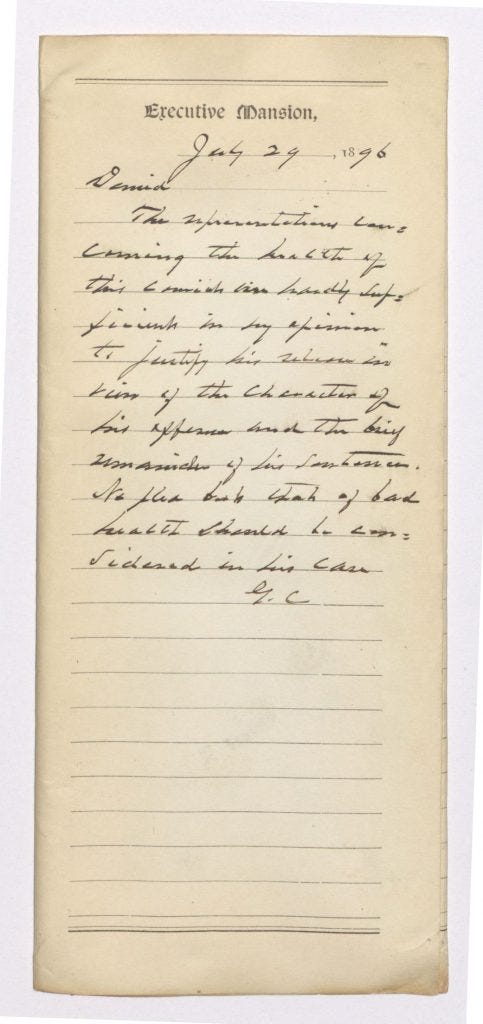 Executive Mansion,
July 29, 1896
Denied
The representations con=
cerning the health of
this convict are hardly suf=
ficient in my opinion
to justify his release in
view of the character of
his offense and the brief
remainder of his sentence.
No plea but that of bad
health should be con=
sidered in his case
G. C